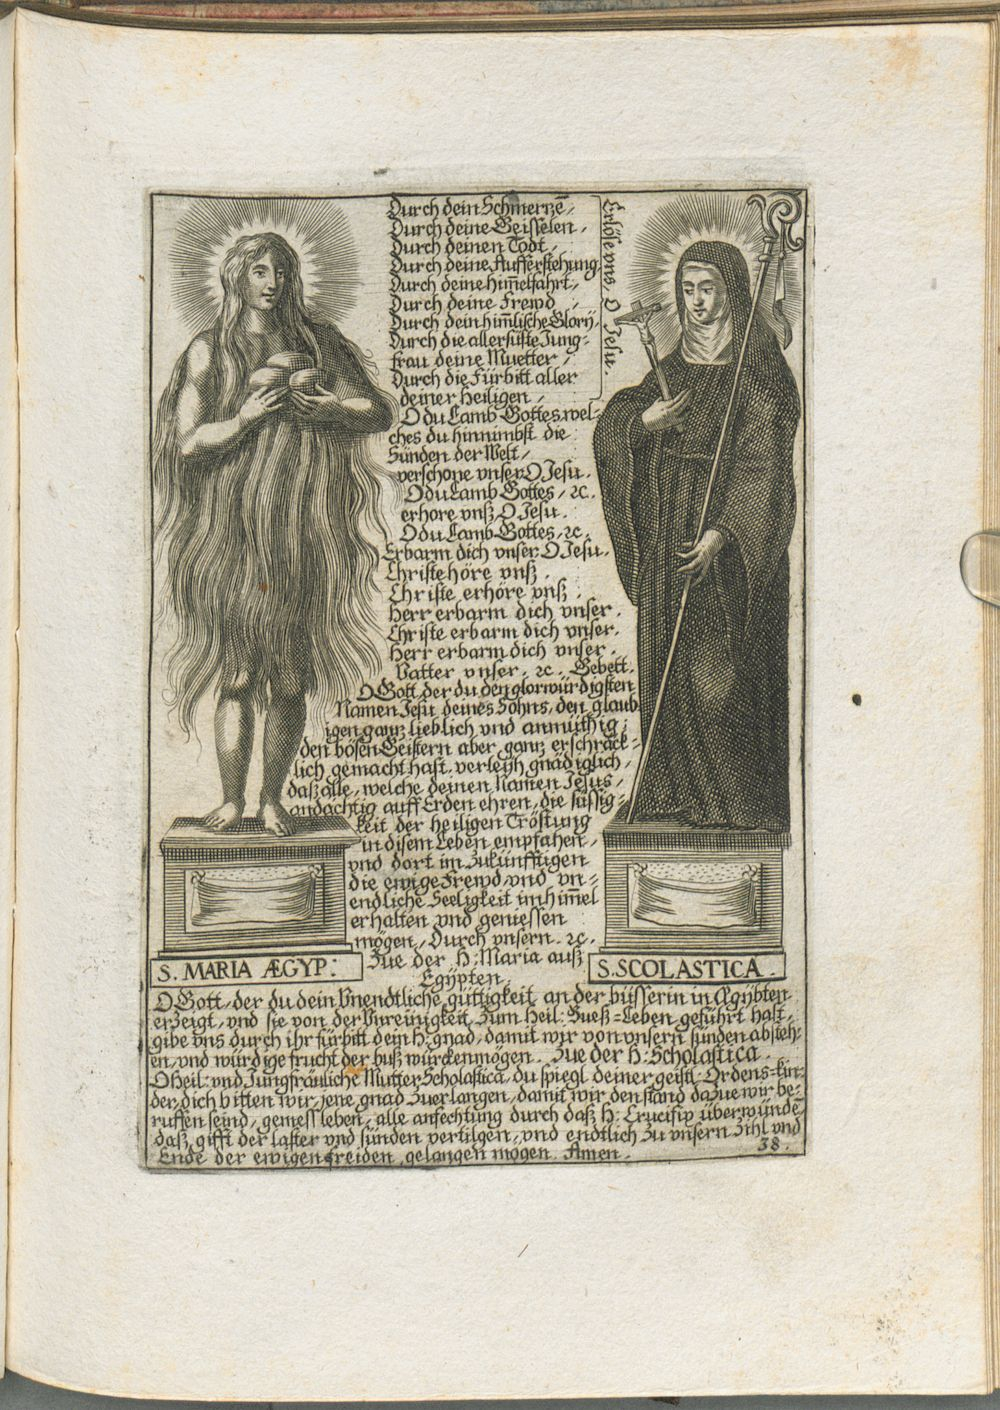 Durch dein Schmerzē,
Durch deine Geisselen,
Durch deinen Todt,
Durch deine Aufferstehung,
Durch deine him̄elfahrt,
Durch deine Frewd,
Durch dein him̄lische Glorÿ,
Durch die allersüste Jung-
frau deine Muetter,
Durch die Fürbitt aller
deiner Heiligen,
Erlöse vns, O Jesu.
O du Lamb Gottes wel-
ches du hinnimbst die
Sünden der Welt,
verschone vnser O Jesu.
O du Lamb Gottes, ꝛc.
erhöre vnß O Jesu.
O du Lamb Gottes, ꝛc.
Erbarm dich vnser O Jesu.
Christe höre vnß.
Christe erhöre vnß.
Herr erbarm dich vnser.
Christe erbarm dich vnser.
Herr erbarm dich vnser.
Vatter vnser, ꝛc. Gebett.
O Gott, der du den glorwürdigsten
Namen Jesu deines Sohns, den glaub
igen ganz lieblich vnd anmüthig,
den bösen Geistern aber ganz erschräck-
lich gemacht hast, verleyh gnädiglich,
daß alle, welche deinen Namen Jesus,
andächtig auff Erden ehren, die süssig-
keit der heiligen Tröstung
in disem Leben empfahen,
vnd dort im Zukünfftigen
die ewige Frewd vnd vn-
endliche Seeligkeit im him̄el
erhalten vnd geniessen
mögen, Durch vnsern. ꝛc.
S. MARIA ÆGYP:
Zue der H: Maria auß
Egÿpten.
S. SCOLASTICA.
O Gott, der du dein Vnendtliche güttigkeit an der büsserin in Ægÿbten
erzeigt, vnd sie von der Vnreinigkeit zum Heil: Bueß-Leben geführt hast,
gibe vns durch ihr fürbitt dein H: gnad, damit wir von vnsern sünden absteh-
en, vnd würdige frucht der buß würcken mögen. Zue der H: Scholastica.
O Heil: vnd Jungfräuliche Mutter Scholastica, du spiegl deiner geistl: Ordens-kin-
der, dich bitten wir, jene gnad zuerlangen, damit wir den stand dazue wir be-
ruffen seind, gemess leben, alle anfechtung durch daß H: Crucifix überwündē,
daß gifft der laster vnd sünden vertilgen, vnd endtlich zu vnsern Zihl vnd
Ende der ewigen freiden gelangen mögen. Amen.
38.